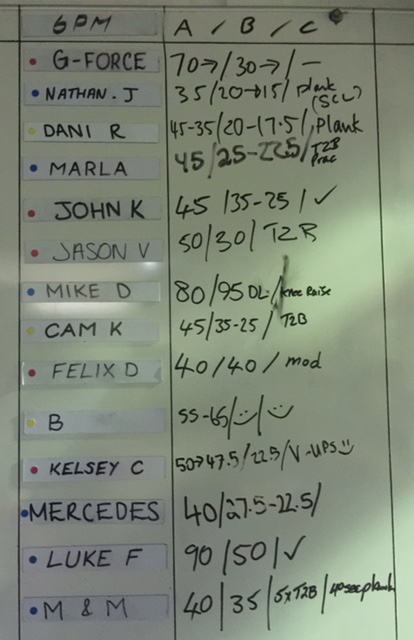 6PM A / B / C
G-FORCE 70→ / 30→ / —
NATHAN.J 35/20→15/ Plank (SCL)
DANI R 45-35/20-17.5/ Plank
MARLA 45/25-22.5/ T2B Prac
JOHN K 45/35-25/ ✓
JASON V 50/30/ T2B
MIKE D 80/95 DL/ Knee Raise
CAM K 45/35-25/ T2B
FELIX D 40/40/ mod
B 55-65/ :) / :)
KELSEY C 50→47.5/22.5/ V-UPS :)
MERCEDES 40/27.5-22.5/
LUKE F 90/50/ ✓
M & M 40/35/ 5xT2B / 40sec plank